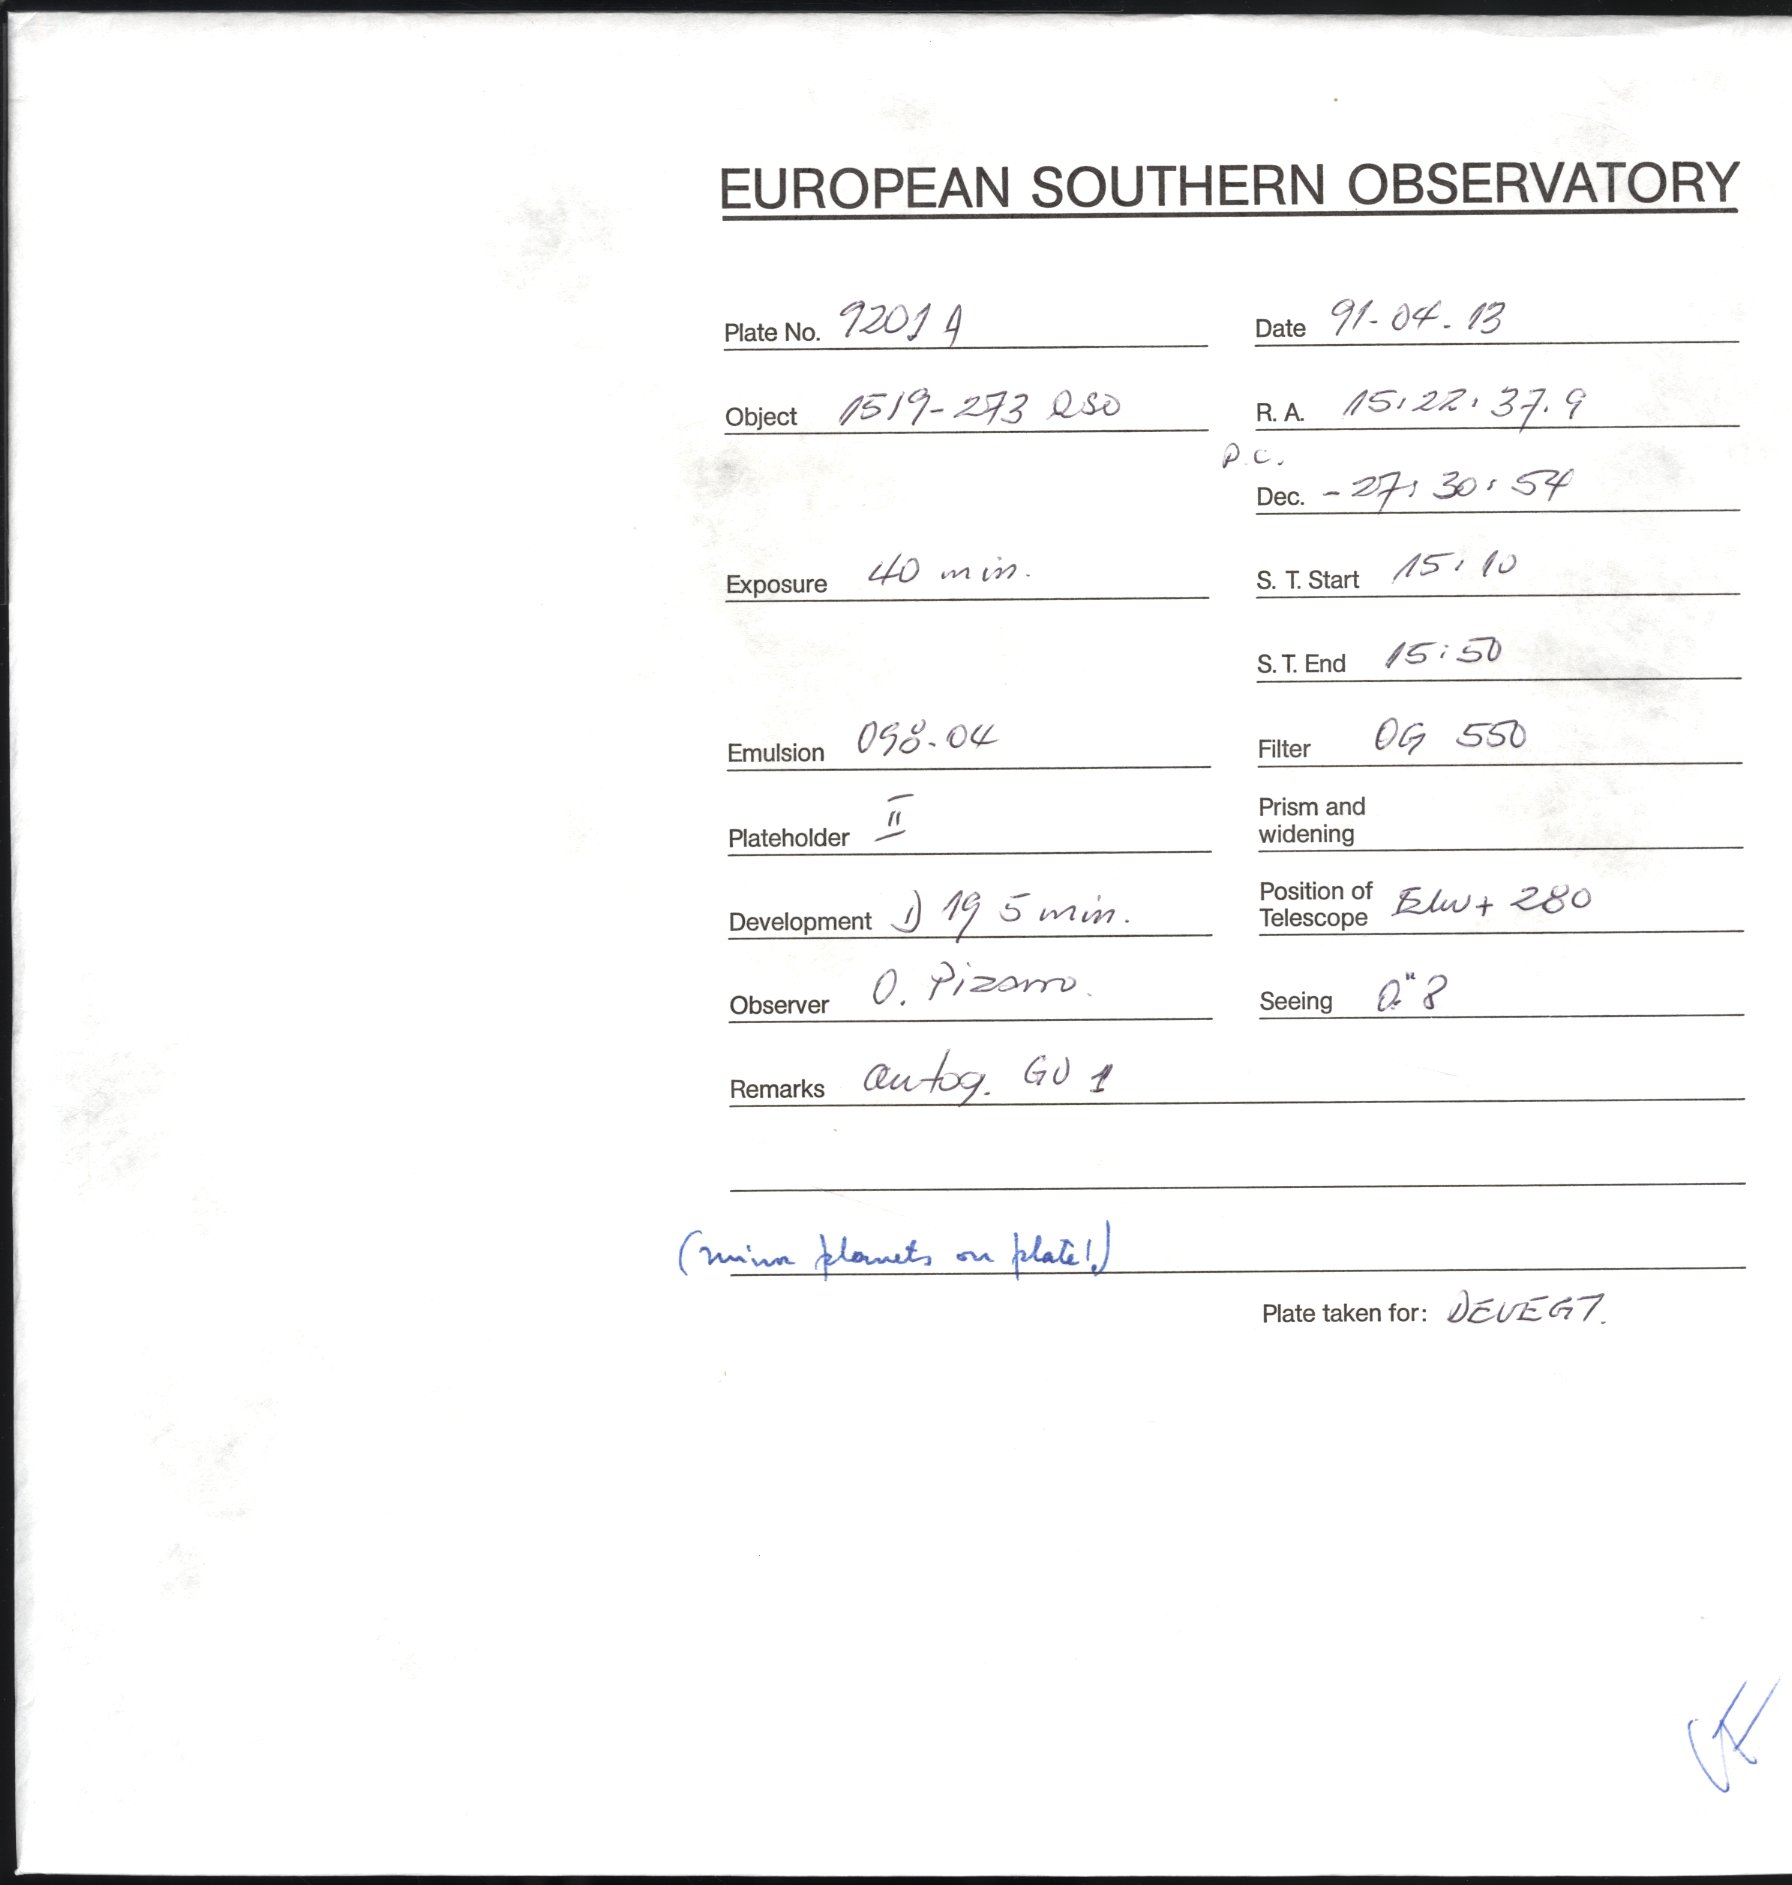 EUROPEAN SOUTHERN OBSERVATORY
Plate No. 9201 A
Date 91-04-13
Object 1519-273 QSO
R. A. 15:22:37.9
P.C.
Dec. -27:30:54
Exposure 40 min.
S. T. Start 15:10
S. T. End 15:50
Emulsion 098-04
Filter OG 550
Plateholder II
Prism and
widening
Development 1) 19 5 min.
Position of
Telescope + 280
Observer O. Pizarro.
Seeing 0."8
Remarks autog. GU 1
(minor planets on plate!)
Plate taken for: DEVEGT.